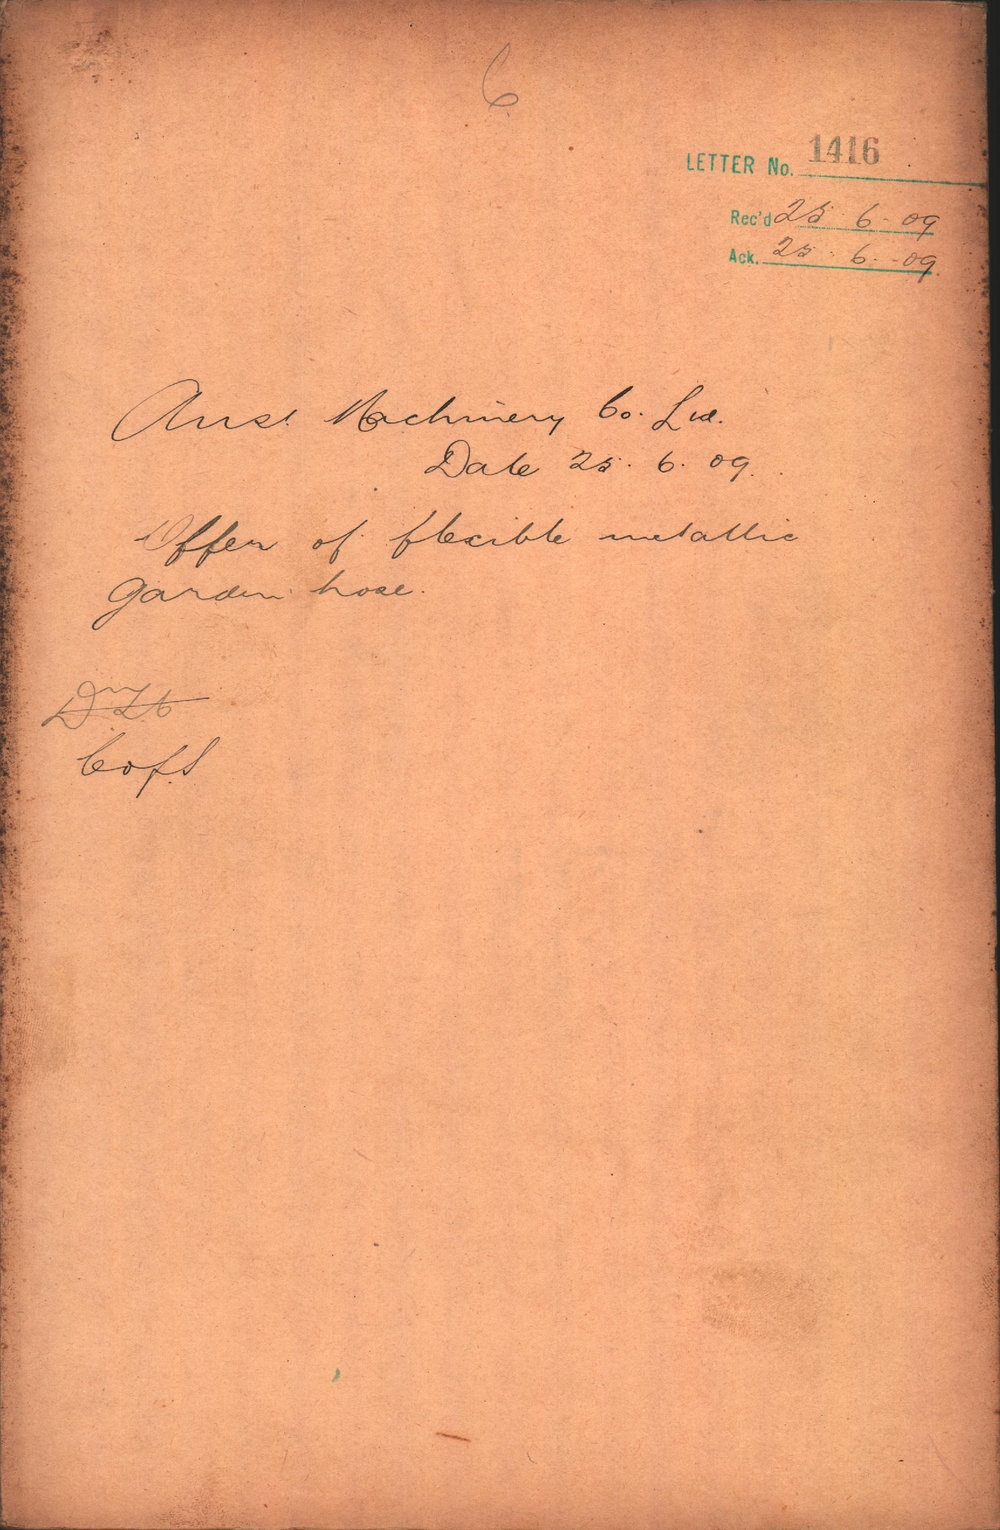 6
LETTER No. 1416
Rec'd 25.6.09
Ack. 25.6.09.
Aust. Machinery Co. Ltd.
Date 25.6.09.
Offer of flexible metallic
garden hose.
C of S